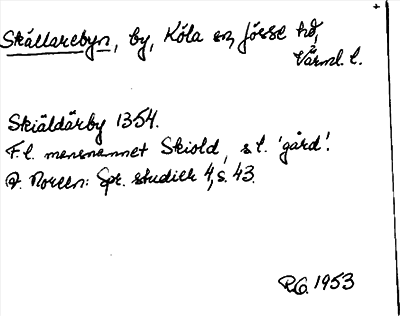 Skállarebyn, by, Köla sn, Jösse hd,
Värml. l.
Skiäldärby 1354.
F.l. mansnamnet Skiold, s.l. 'gård'.
A. Noreen: Spr. studier 4, s. 43.
R.G. 1953